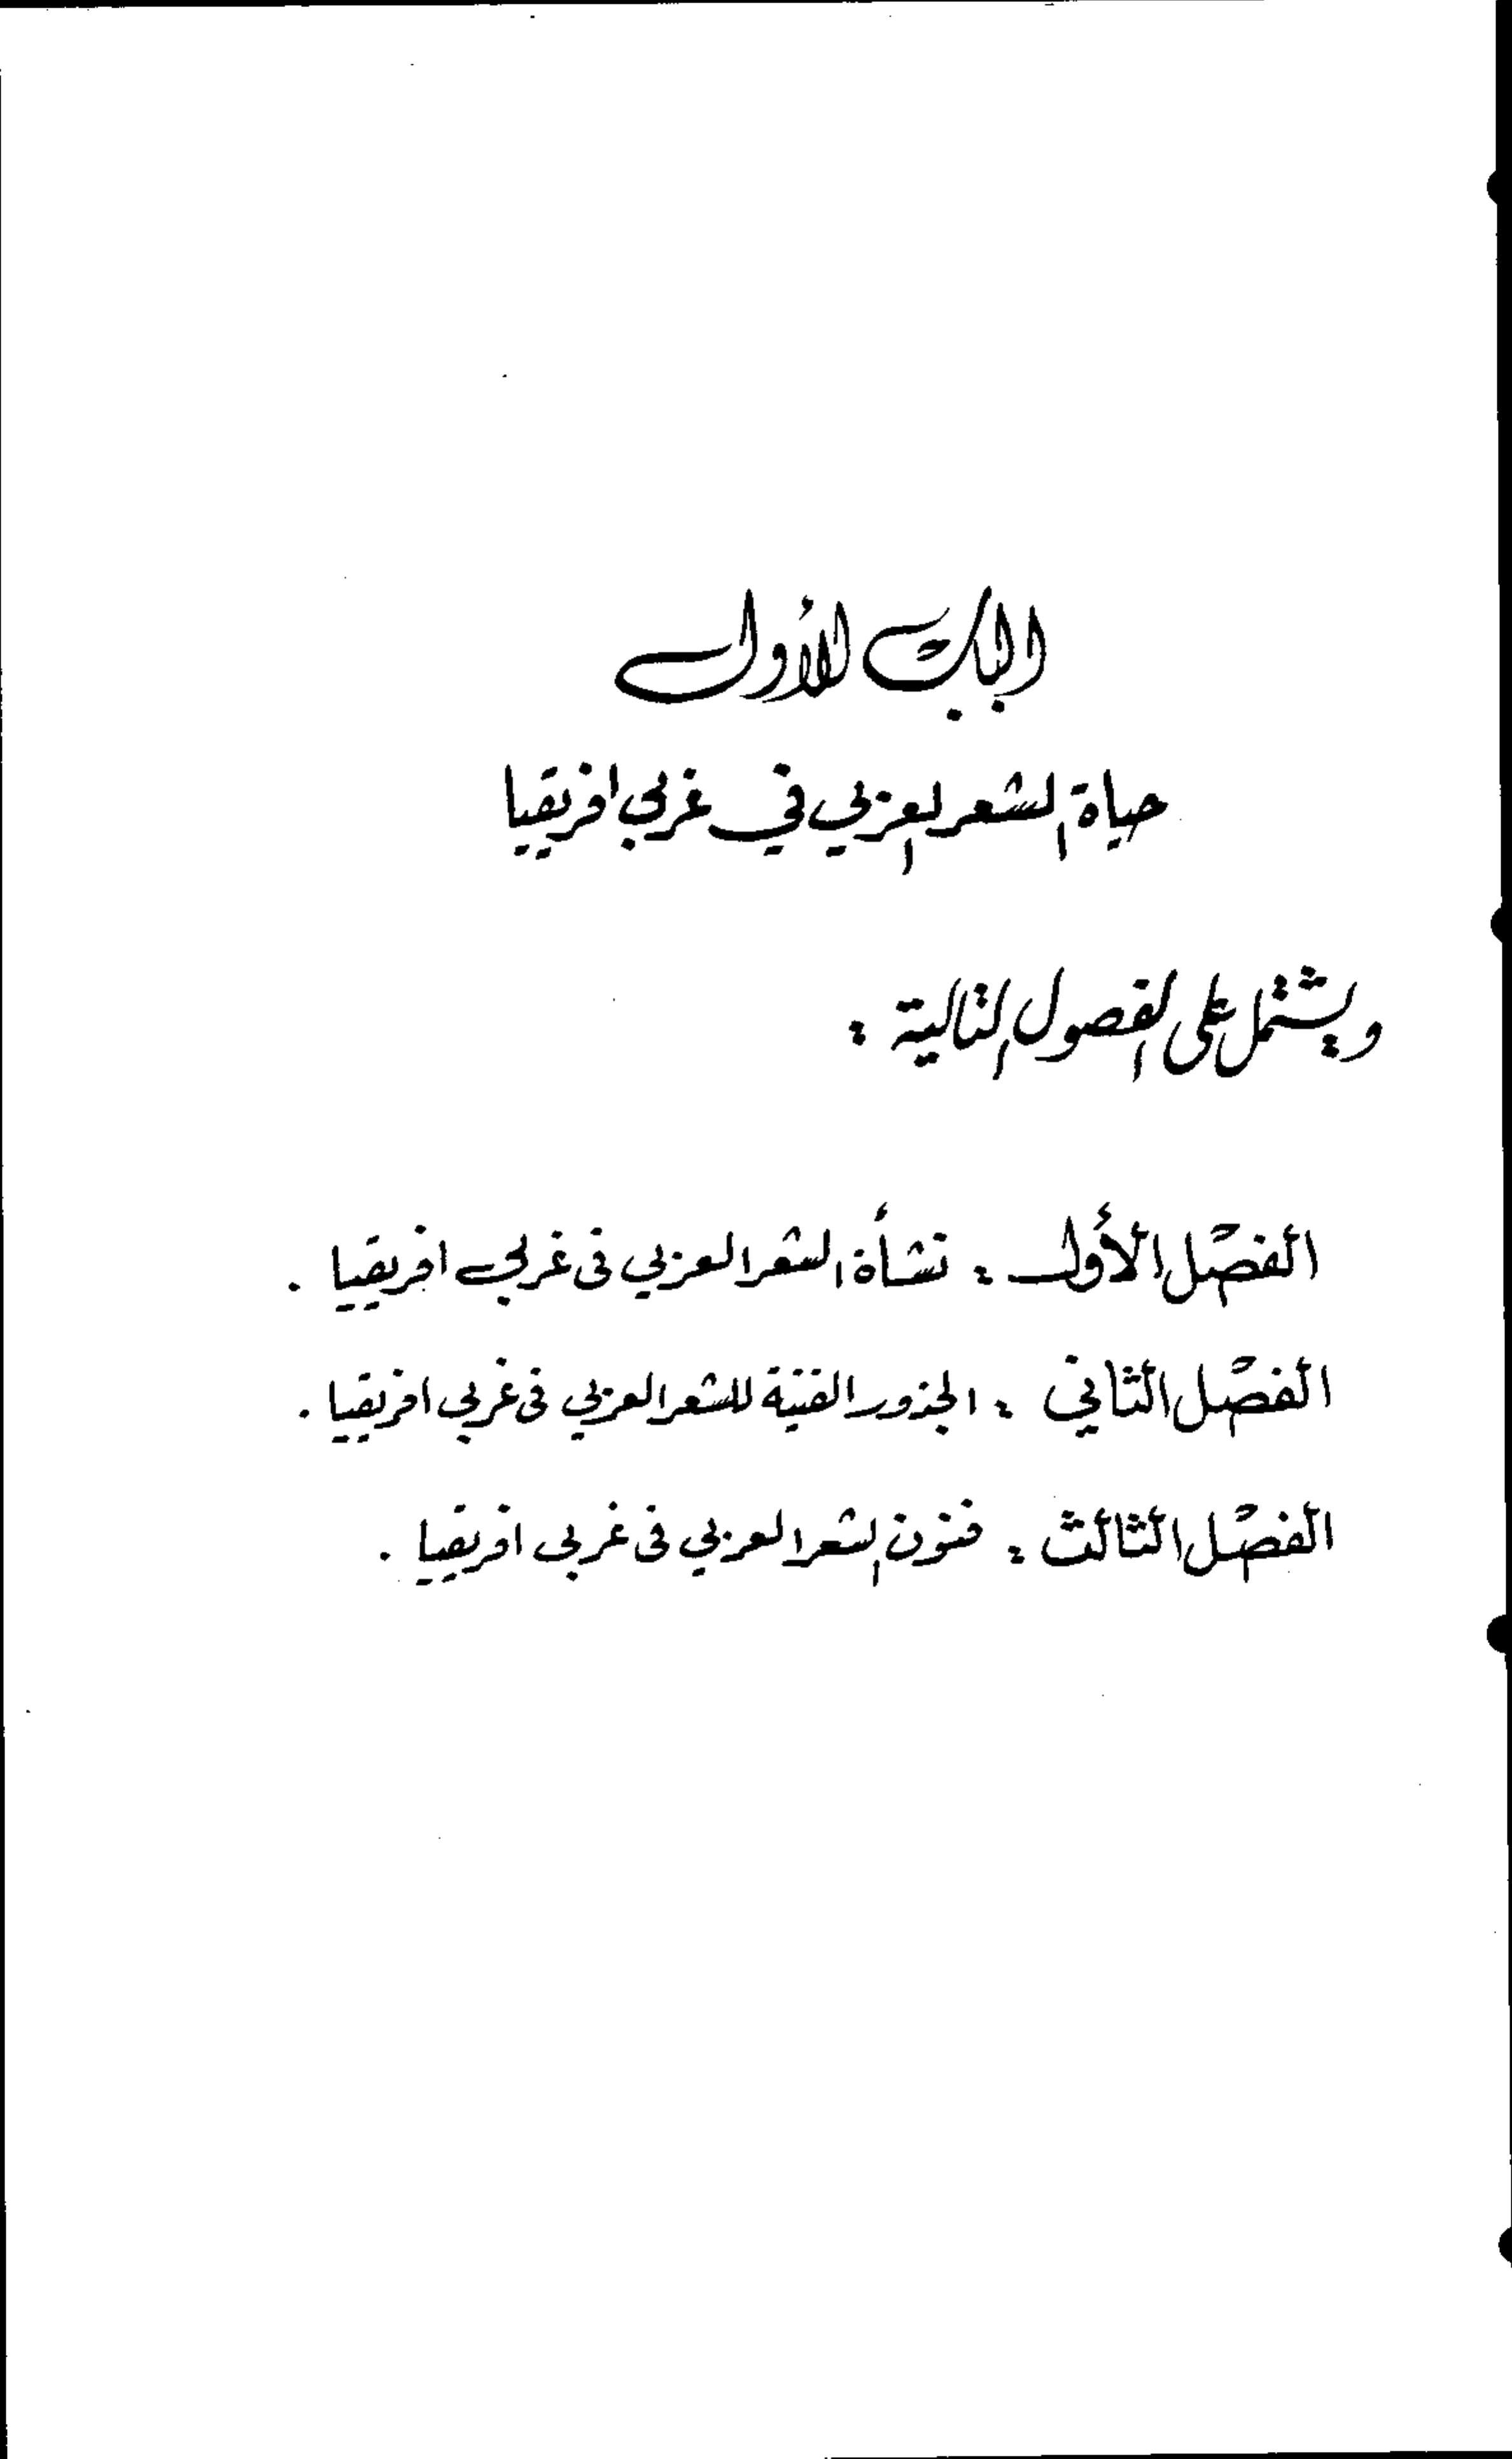 الباب الأول
حياة الشعر العربي في غربي افريقيا
ويشتمل على الفصول التالية :
الفصل الأول : نشأة الشعر العربي في غربي افريقيا .
الفصل الثاني : الجذور الفنية للشعر العربي في غربي افريقيا .
الفصل الثالث : فنون الشعر العربي في غربي افريقيا .